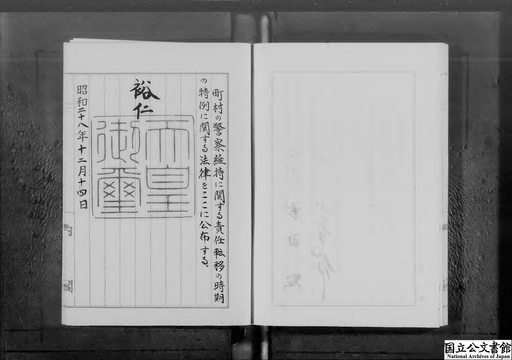 町村の警察維持に関する責任転移の時期
の特例に関する法律をここに公布する。
裕仁
天皇
御璽
昭和二十八年十二月十四日
国立公文書館
National Archives of Japan